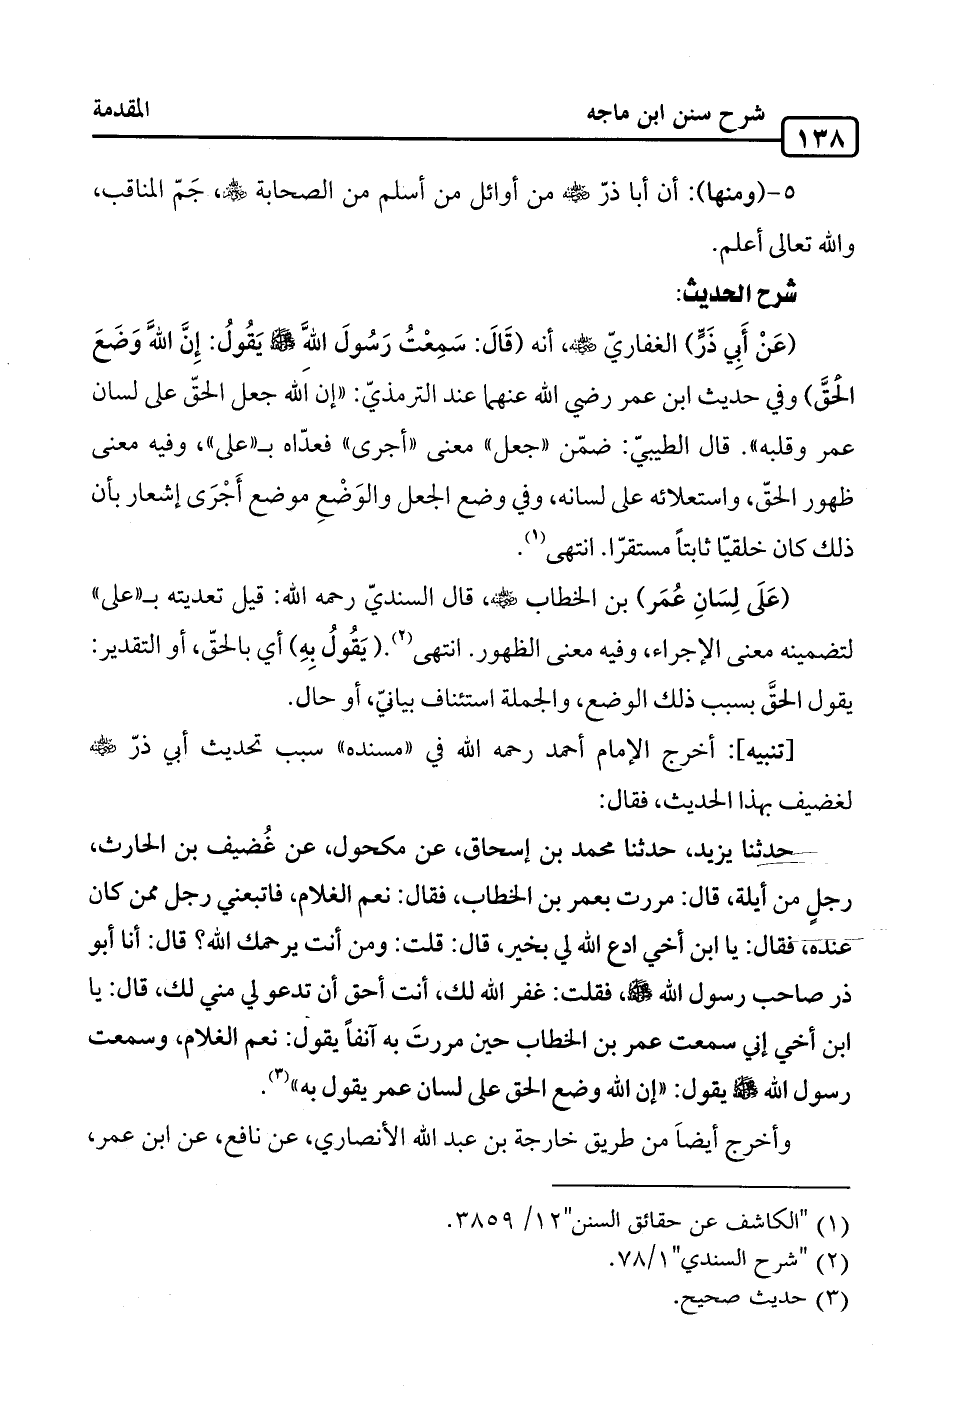 المقدمة
شرح سنن ابن ماجه
١٣٨
٥-(ومنها): أن أبا ذرّ ﵁ من أوائل من أسلم من الصحابة ﵃، جَمّ المناقب،
والله تعالى أعلم.
شرح الحديث:
(عَنْ أَبِي ذَرٍّ) الغفاريّ ﵁، أنه (قَالَ: سَمِعْتُ رَسُولَ اللهِ ﷺ يَقُولُ: إِنَّ اللهَ وَضَعَ
الْحَقَّ) وفي حديث ابن عمر رضي الله عنهما عند الترمذيّ: «إن الله جعل الحقّ على لسان
عمر وقلبه». قال الطيبيّ: ضمّن «جعل» معنى «أجرى» فعدّاه بـ«على»، وفيه معنى
ظهور الحقّ، واستعلائه على لسانه، وفي وضع الجعل والوَضْعِ موضع أَجْرَى إشعار بأن
ذلك كان خلقيّا ثابتاً مستقرّا. انتهى(١).
(عَلَى لِسَانِ عُمَر) بن الخطاب ﵁، قال السنديّ رحمه الله: قيل تعديته بـ«على»
لتضمينه معنى الإجراء، وفيه معنى الظهور. انتهى(٢).( يَقُولُ بِهِ) أي بالحقّ، أو التقدير:
يقول الحقَّ بسبب ذلك الوضع، والجملة استئناف بيانيّ، أو حال.
[تنبيه]: أخرج الإمام أحمد رحمه الله في «مسنده» سبب تحديث أبي ذرّ ﵁
لغضيف بهذا الحديث، فقال:
حدثنا يزيد، حدثنا محمد بن إسحاق، عن مكحول، عن غُضيف بن الحارث،
رجلٍ من أيلة، قال: مررت بعمر بن الخطاب، فقال: نعم الغلام، فاتبعني رجل ممن كان
عنده، فقال: يا ابن أخي ادع الله لي بخير، قال: قلت: ومن أنت يرحمك الله؟ قال: أنا أبو
ذر صاحب رسول الله ﷺ، فقلت: غفر الله لك، أنت أحق أن تدعو لي مني لك، قال: يا
ابن أخي إني سمعت عمر بن الخطاب حين مررتَ به آنفاً يقول: نعم الغلام، وسمعت
رسول الله ﷺ يقول: «إن الله وضع الحق على لسان عمر يقول به»(٣).
وأخرج أيضاً من طريق خارجة بن عبد الله الأنصاري، عن نافع، عن ابن عمر،
(١) "الكاشف عن حقائق السنن"١٢/ ٣٨٥٩.
(٢) "شرح السندي"١/ ٧٨.
(٣) حديث صحيح.